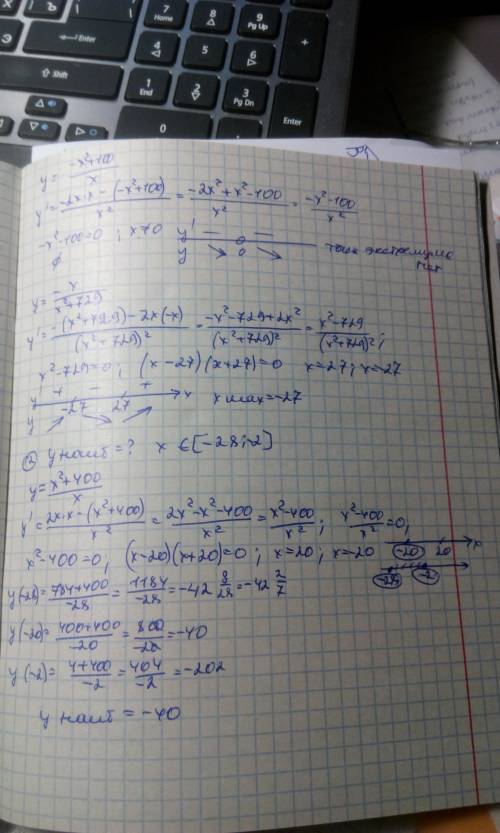 7 Home
8
9 Pg Up
+
Enter
4
5
6
Shift
1 End
2
3 Pg Dn
0
Enter
y = -x²+100 / x
y' = -2x·x - (-x²+100) / x² = -2x²+x²-100 / x² = -x²-100 / x²
-x²-100=0 ; x≠0 y' — —
∅ y 0 точек экстремума нет
y = -x / x²+729
y' = -(x²+729)-2x(-x) / (x²+729)² = -x²-729+2x² / (x²+729)² = x²-729 / (x²+729)² ;
x²-729=0 ; (x-27)(x+27)=0 x=27 ; x=-27
y' + - + x
y -27 27 x max=-27
② y наиб=? x ∈[-28;-2]
y = x²+400 / x
y' = 2x·x-(x²+400) / x² = 2x²-x²-400 / x² = x²-400 / x² ; x²-400 / x² =0,
x²-400=0, (x-20)(x+20)=0 ; x=20 ; x=-20 -20 20 x
-28 -2
y(-28)= 784+400 / -28 = 1184 / -28 =-42 8/28 =-42 2/7
y(-20)= 400+400 / -20 = 800 / -20 =-40
y(-2)= 4+400 / -2 = 404 / -2 =-202
y наиб = -40